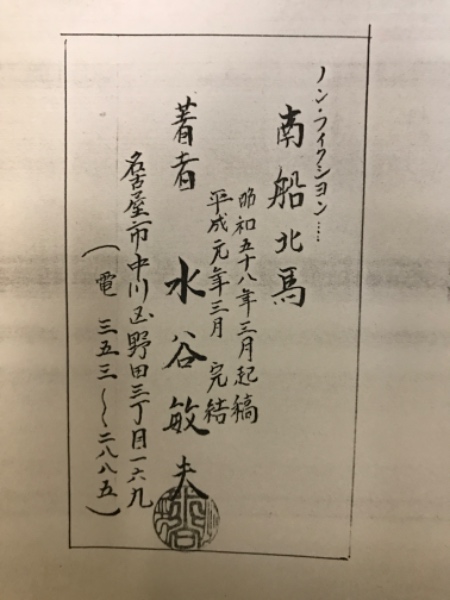 ノン・フイクシヨン……
南船北馬
昭和五十八年三月起稿
平成元年三月 完結
著者 水谷敏夫
名古屋市中川区野田三丁目一六九
(電 三五三〜二八八五)